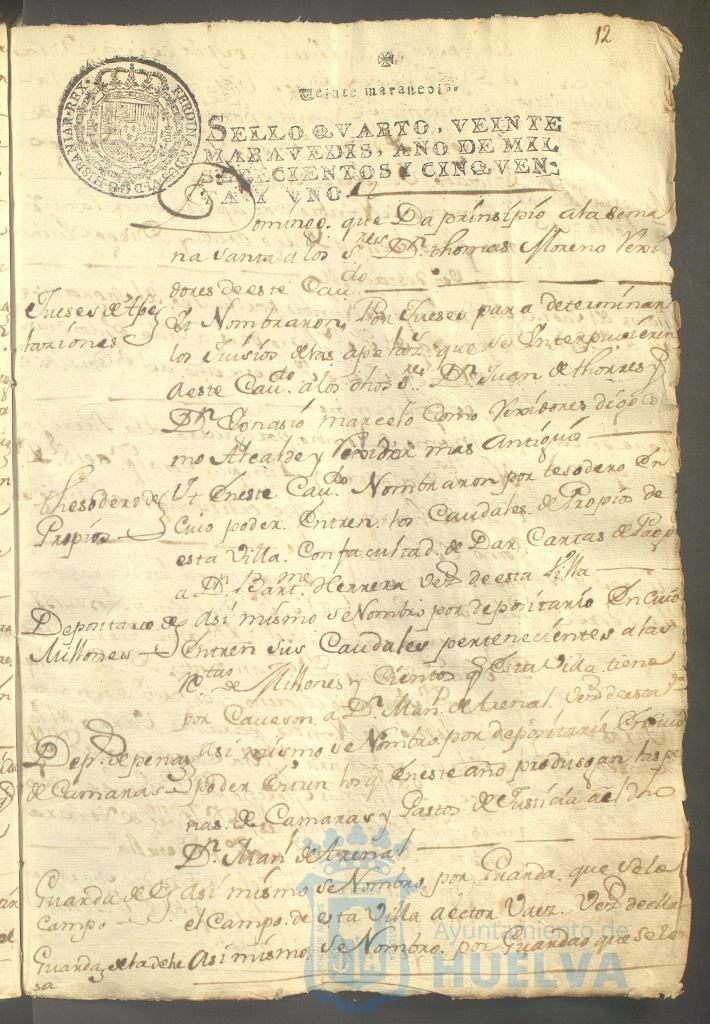 12
Veinte maravedis.
SELLO QVARTO, VEINTE
MARAVEDIS, AÑO DE MIL
SETECIENTOS Y CINQVEN-
TA Y VNO.
FERDINANDUS VI D G HISPANIAR REX
Domingo. que Da prinsipio ala sema
na santa a los s.res Dn. thomas Moreno Rexi
dores de este Cau.do
Jueses de Ape
laziones
Nombraron Por Jueses para determinar
los Juisios de las apelaz.s que se Interpusieren
a este Cau.do a los dhos s.res Dn. Juan de thorres y
Dn. Ignasio marcelo Como Rexidores digo Co
mo Alcalde y Rexidor mas Antiguo
thesodero de
Propios
Yt Eneste Cau.do Nombraron por tesodero En
Cuio poder. Entren. los Caudales. de Propios de
esta Villa. Con facultad. de Dar Cartas de Pago
a Dn. Bar.me Herrera Vez.o de esta Villa
Depositario de
Millones
Asi mismo se Nombro por depositario En cuio
Entren sus Caudales pertenecientes a las
R.tas de Millones y Cientos q Esta Villa tiene
por Caveson. a Dn. Man.l de Arenal. Vez.o de esta V.a
Dep.o de penas
de Camaras
asi mismo se Nombro. por depositario En cuio
poder Entren los q Eneste año produsgan las pe
nas. de Camaras y Gastos de Justicia a el dho
Dn. Man.l de Arenal
Guarda de el
Campo
Asi mismo se Nombro, por Guarda. que sele
el Campo. de esta Villa a ector Vaez. Vez.o de ella
Guarda de la dehe
sa
Asi mismo se Nombro. por Guarda que sele
Ayuntamiento de
HUELVA